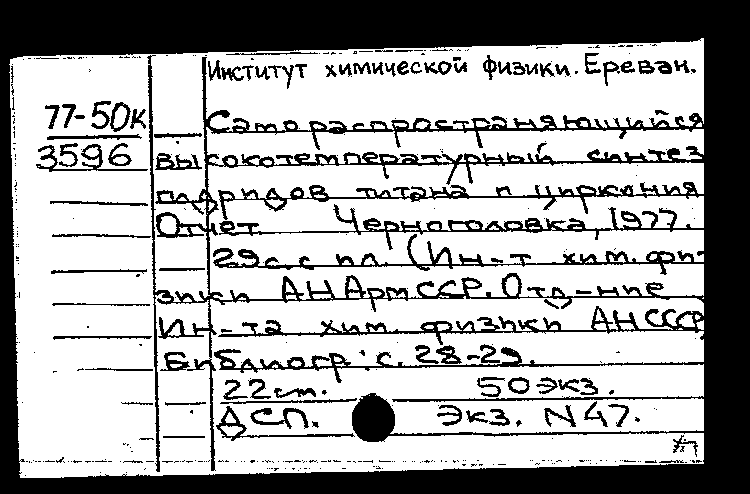 Институт химической физики. Ереван.
77-50к
3596
Самораспространяющийся
высокотемпературный синтез
гидридов титана и циркония
Отчет Черноголовка, 1977.
29с. с ил. (Ин-т хим. фи-
зики АН АрмССР. Отд-ние
Ин-та хим. физики АН СССР)
Библиогр.: с. 28-29.
22см. 50экз.
ДСП. Экз. N47.